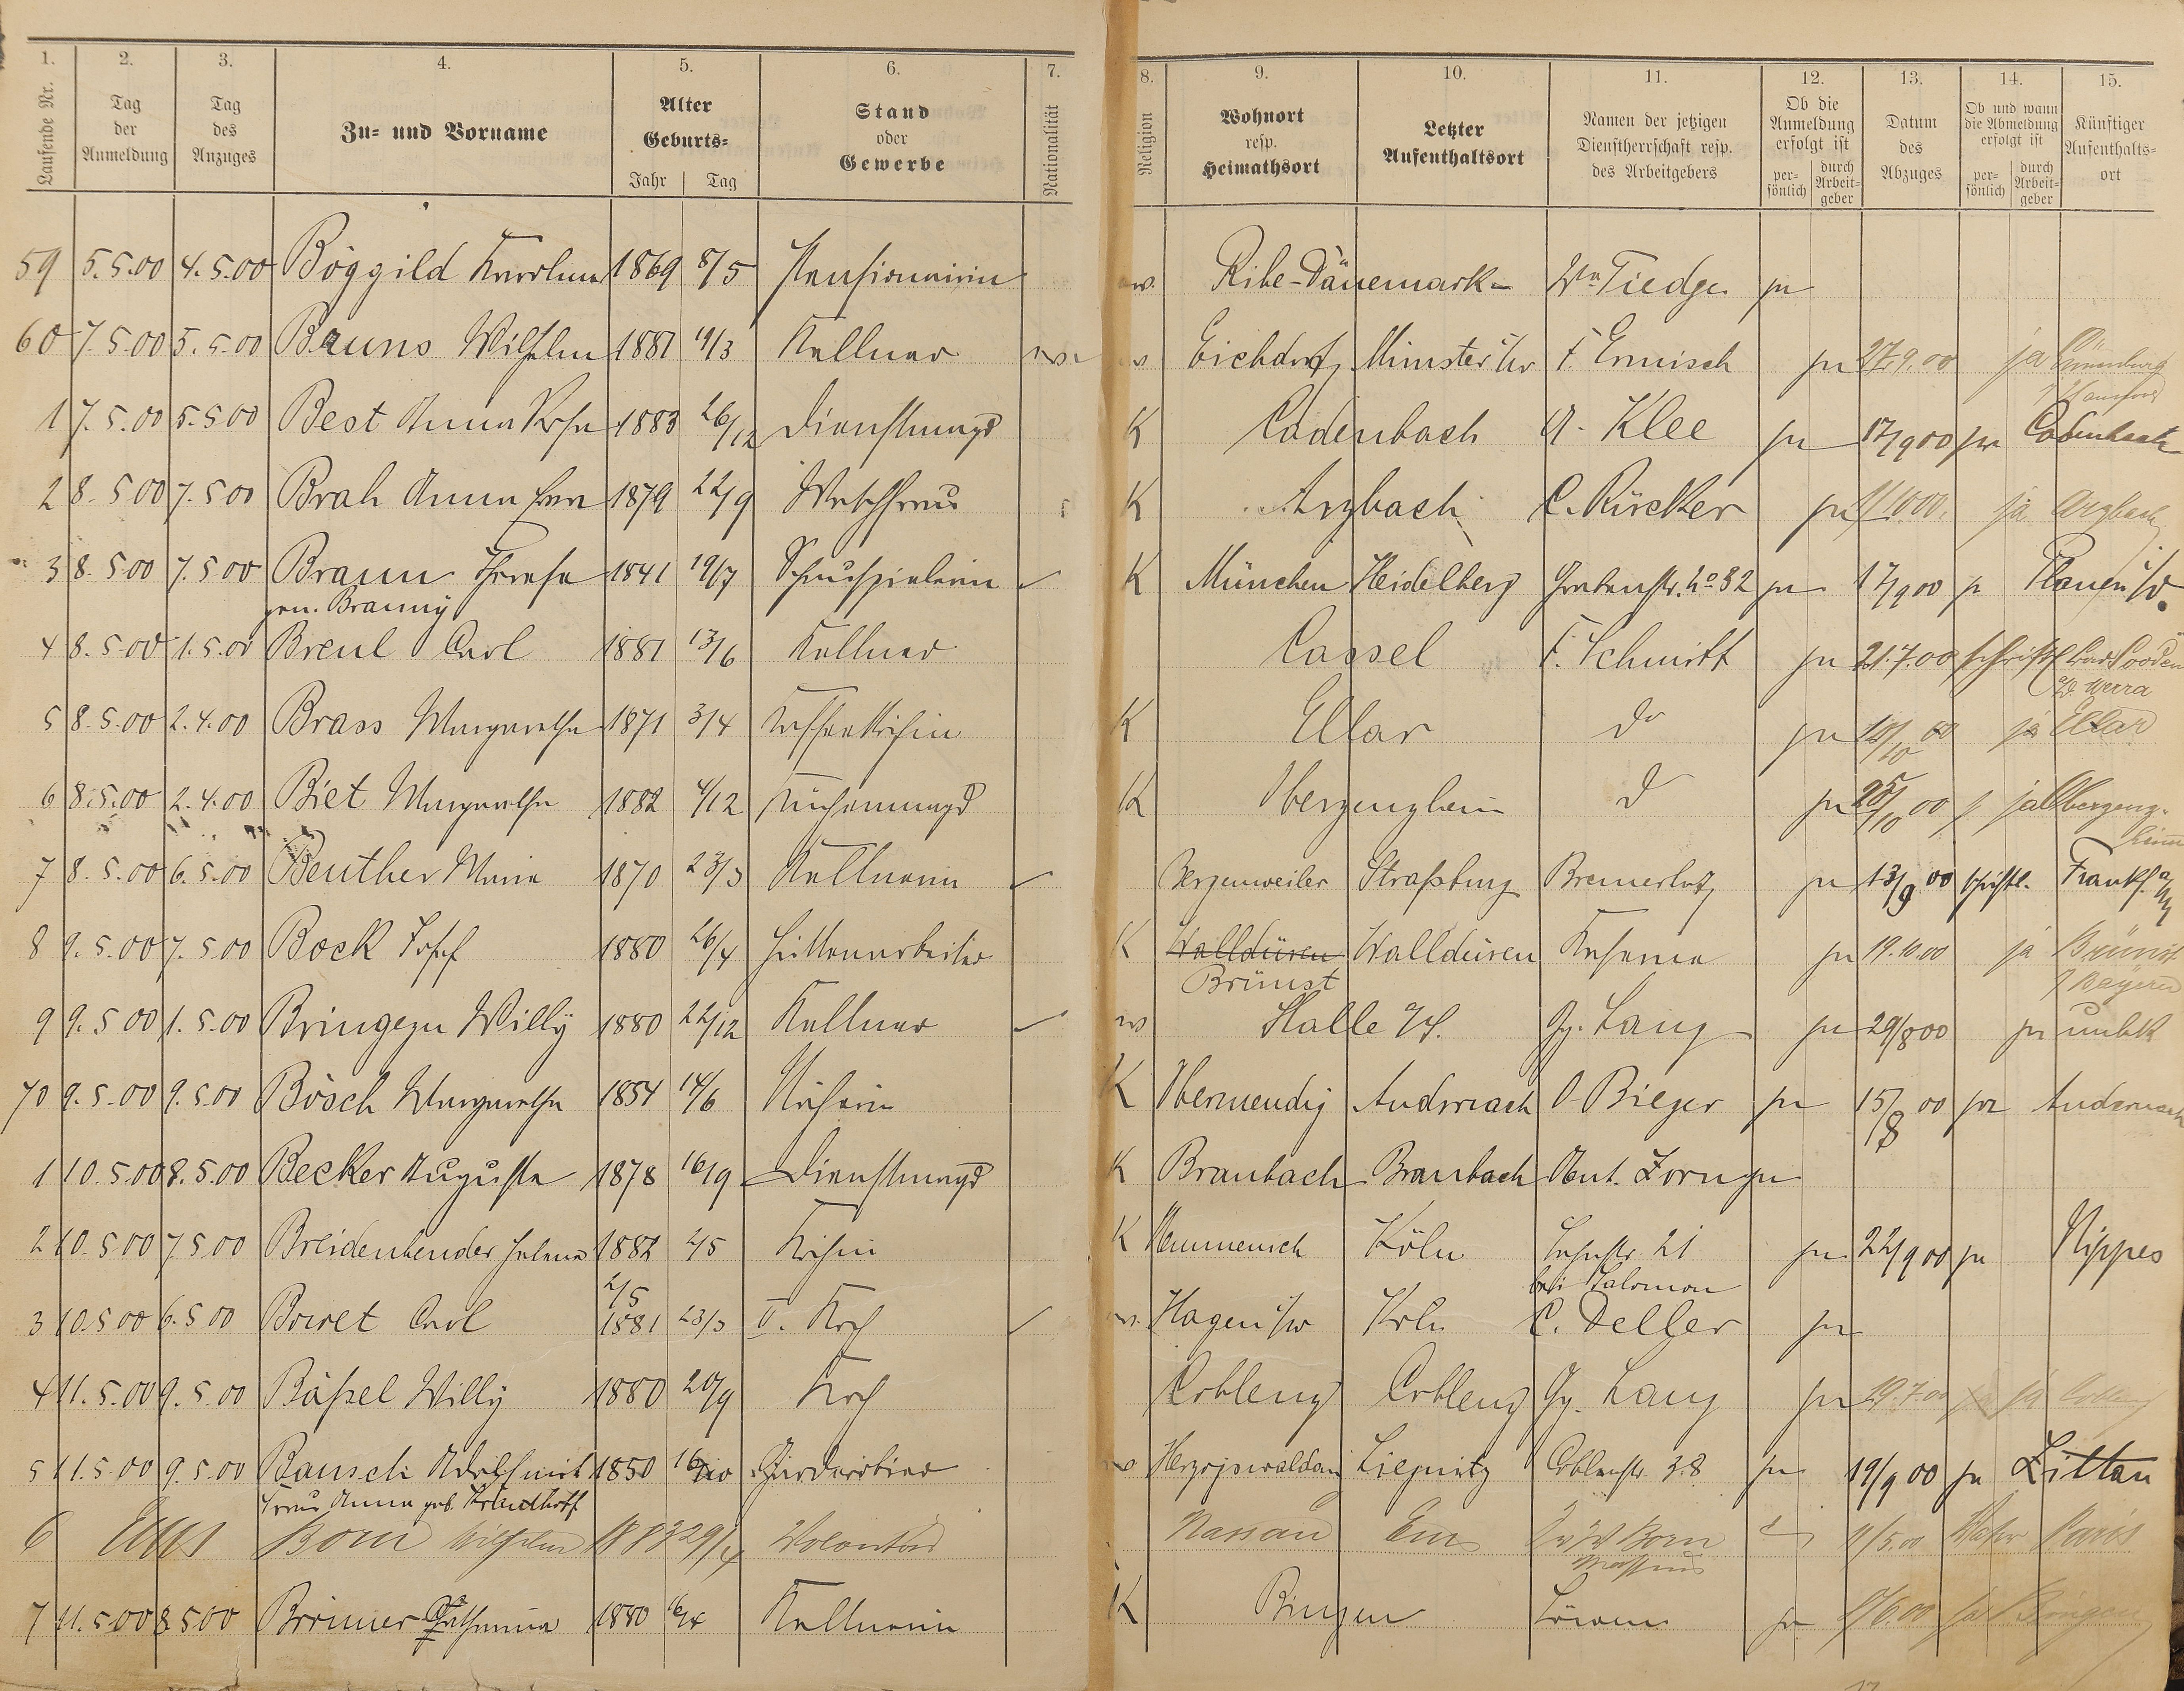 1. 2. 3. 4. 5. 6. 7. 8. 9. 10. 11. 12. 13. 14. 15.
Laufende Nr. Tag der Anmeldung Tag des Anzuges Zu- und Vorname Alter Geburts- Jahr Tag Stand oder Gewerbe Nationalität Religion Wohnort resp. Heimathsort Letzter Aufenthaltsort Namen der jetzigen Dienstherrschaft resp. des Arbeitgebers Ob die Anmeldung erfolgt ist persönlich durch Arbeitgeber Datum des Abzuges Ob und wann die Abmeldung erfolgt ist persönlich durch Arbeitgeber Künftiger Aufenthalts-ort
59 5.5.00 4.5.00 Böggild Karoline 1869 8/5 Pensionairin Ribe-Dänemark- Wwe Tiedge ja
60 7.5.00 5.5.00 Bauns Wilhelm 1881 19/3 Kellner Eichdorf Münster i/w F. Ermisch ja 27.9.00 ja
1 7.5.00 5.5.00 Best Anna Rosa 1883 26/12 Dienstmagd K Cadenbach A. Klee ja 17/9 00 ja Cadenbach
2 8.5.00 7.5.00 Brah Anna 1879 22/9 Waschfrau K Arzbach C. Rücker ja 1/10.00. ja Arzbach
3 8.5.00 7.5.00 Braun Therese 1841 19/7 Schauspielerin K München Heidelberg Grabenstr. No 32 ja 17/9 00 ja Plauen i/V.
gen. Brauny
4 8.5.00 1.5.00 Breul Carl 1881 13/6 Kellner Cassel F. Schmitt ja 21.7.00 schriftl Bad Sooden
a/d Werra
5 8.5.00 2.4.00 Brass Margarethe 1871 3/4 Kaffeeköchin K Ellar do ja 10/10 00 ja Ellar
6 8.5.00 2.4.00 Biet Margarethe 1882 4/12 Küchenmagd K Oberzeugheim do ja 25/10 00 ja Oberzeug-
heim
7 8.5.00 6.5.00 Beuther Marie 1870 23/3 Kellnerin Bergenweiler Straßburg Bremerlutz ja 13/9 00 schriftl. Frankf. a/M
8 9.5.00 7.5.00 Bock Josef 1880 26/4 Hüttenarbeiter K Walldüren Walldüren ja 19.10.00 ja Brünst
Brünst Bayern
9 9.5.00 1.5.00 Bringezu Willy 1880 22/12 Kellner Halle a/S. Gg. Lang ja 29/8 00 ja unbk
70 9.5.00 9.5.00 Bösch Margarethe 1854 14/6 Näherin K Obermendig Andernach O. Bieger ja 15/8 00 ja Andernach
1 10.5.00 8.5.00 Becker Auguste 1878 16/9 Dienstmagd K Braubach Braubach Ant. Zorn ja
2 10.5.00 7.5.00 Breidenbender Helene 1882 2/5 Köchin K Köln Lahnstr. 21 ja 22/9 00 ja Nippes
2/5 bei Salomon
3 10.5.00 6.5.00 Boivet Carl 1881 23/3 II. Koch Hagen i/w Köln C. Deller ja
4 11.5.00 9.5.00 Bäßel Willy 1880 20/9 Koch Coblenz Coblenz Gg. Lang ja 29.7.00 ja
5 11.5.00 9.5.00 Bausch Adolf mit 1850 16/10 Herzogswaldau Liegnitz Coblenzstr. 38 ja 19/9 00 ja Zittau
Frau Anna geb.
6 Ems Born Wilhelm 1883 29/4 Volontär Nassau Ems Born 11/5.00 Paris
7 11.5.00 8.5.00 Brömer Catharina 1880 16/4 Kellnerin K Bingen Löwen ja 8/6.00 ja Bingen